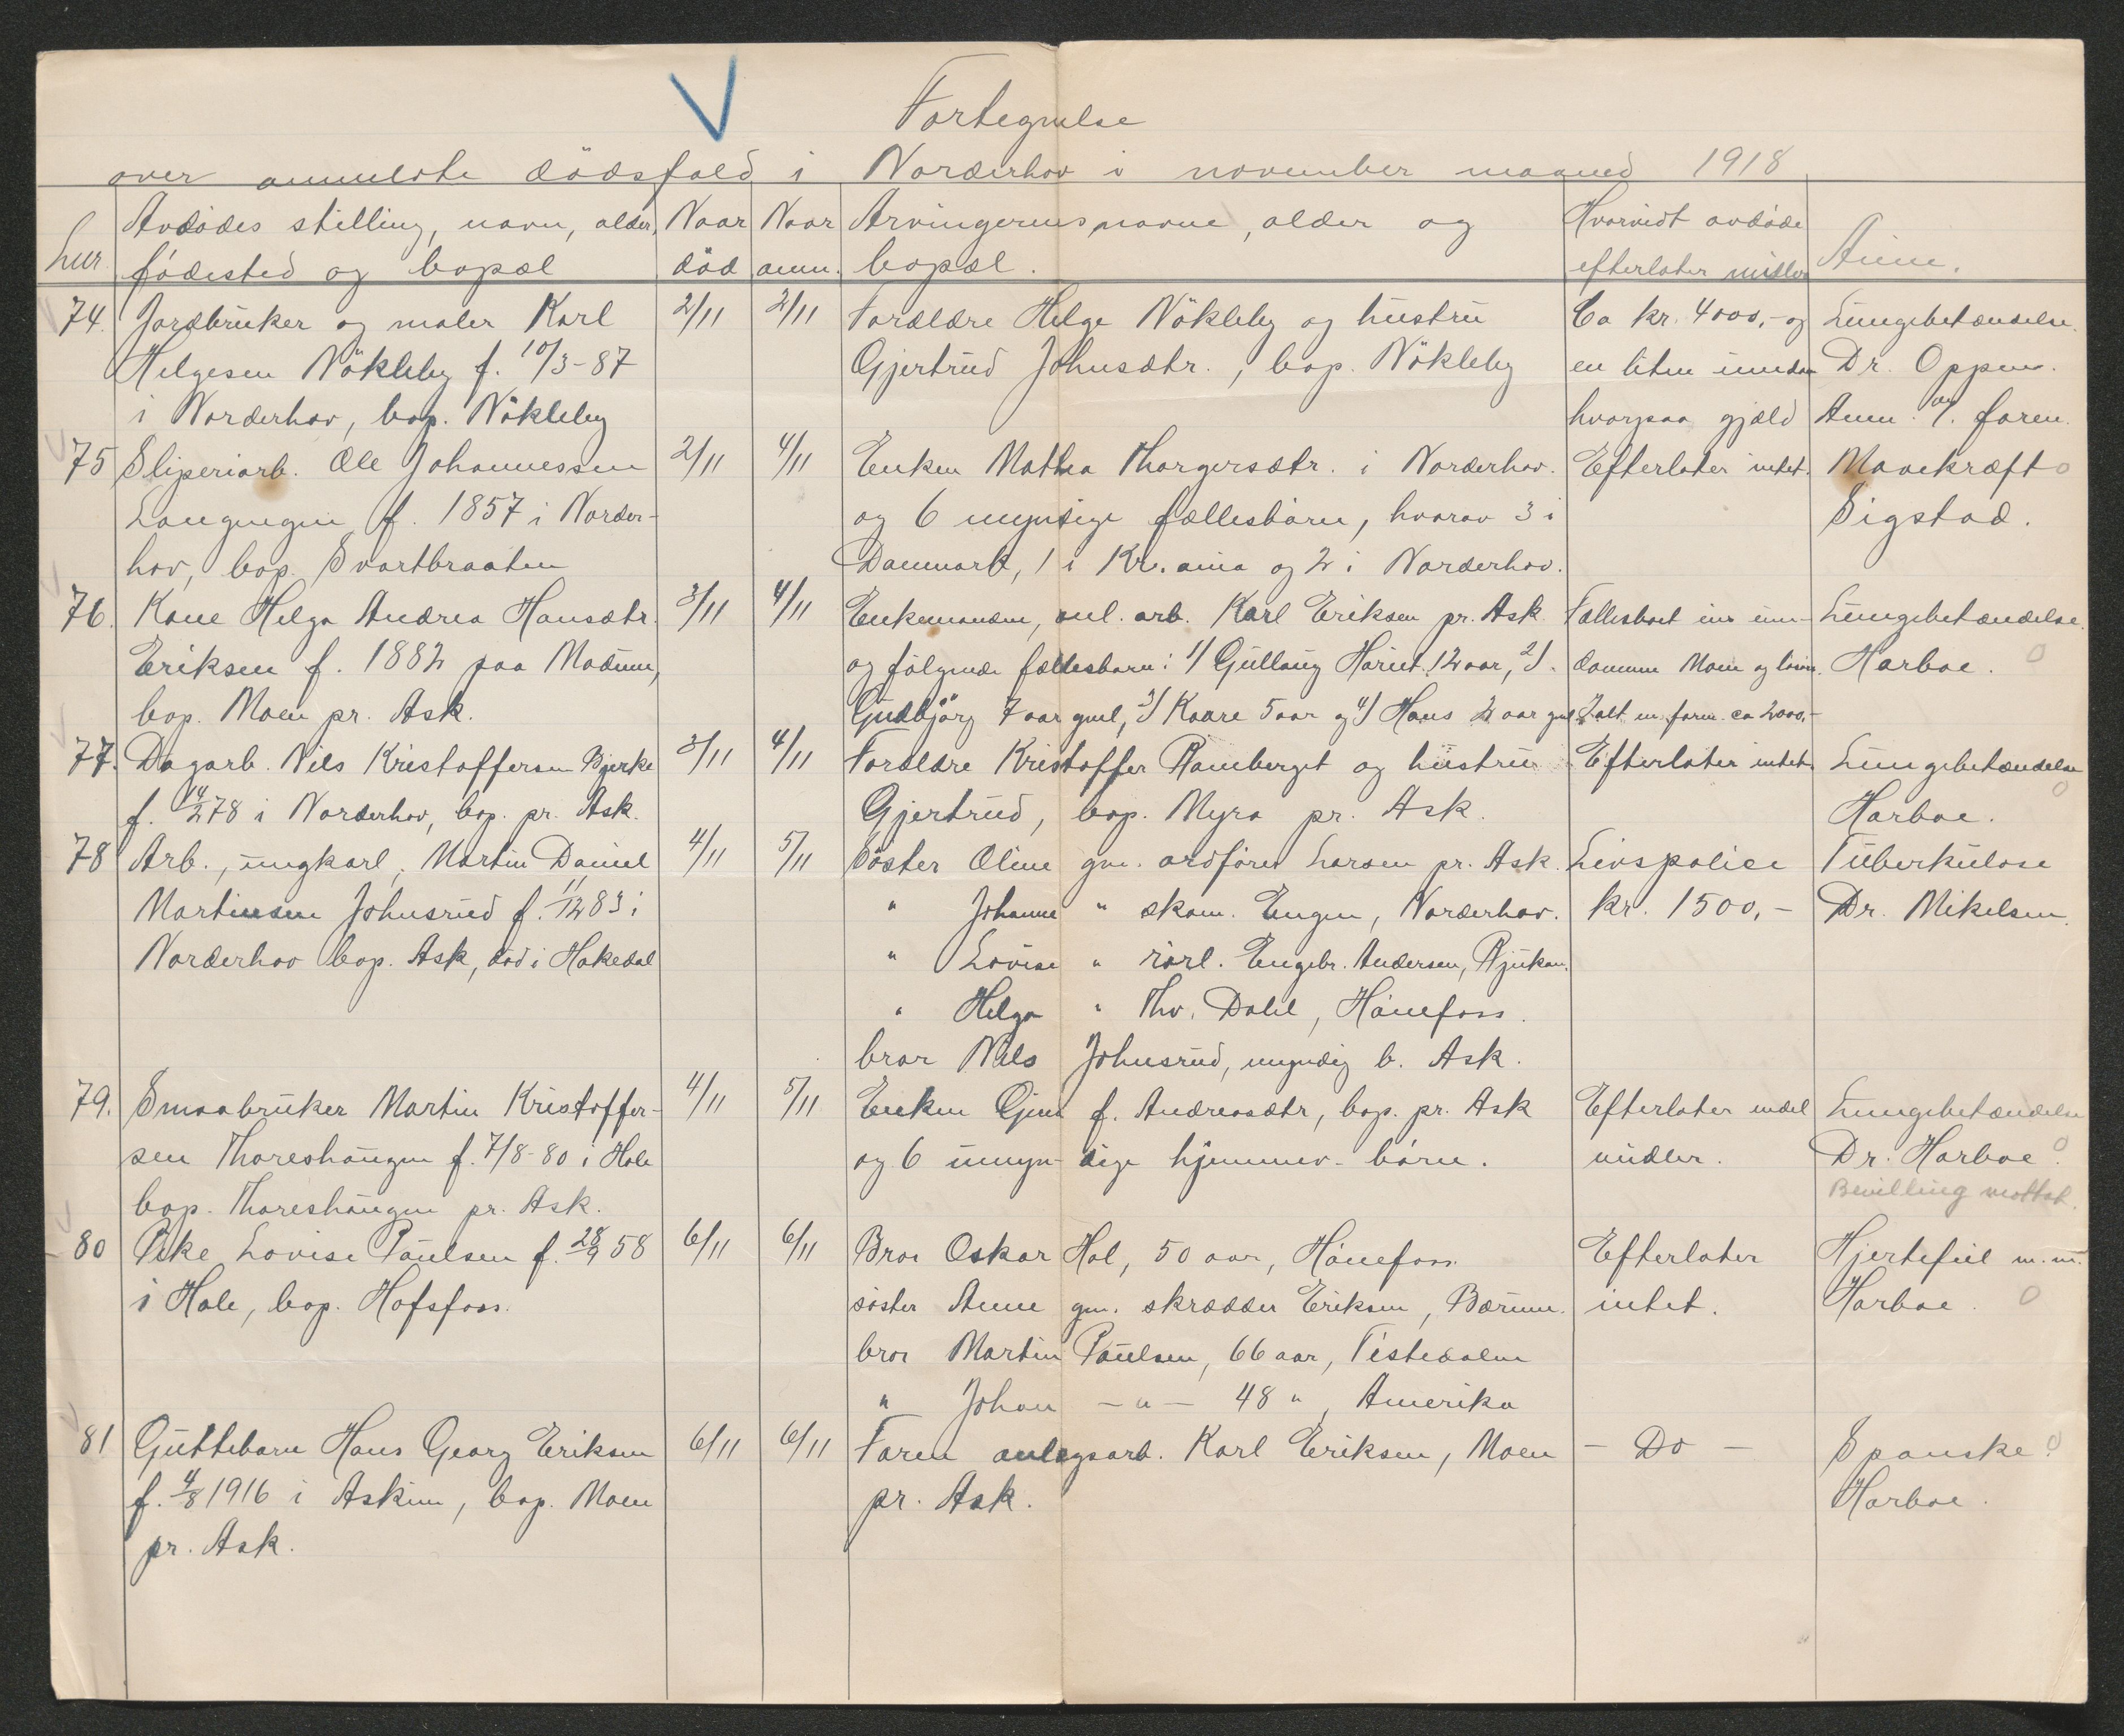 Fortegnelse
over anmeldte dödsfald i Norderhov i november maaned 1918
Lnr.
Avdödes stilling, navn, alder, födested og bopæl
Naar död
Naar anm.
Arvingernes navne, alder og bopæl.
Hvorvidt avdöde efterlater midler
Anm.
74. Jordbruker og maler Karl
Helgesen Nökleby f. 10/3-87
i Norderhov, bop. Nökleby
2/11 2/11
Forældre Helge Nökleby og hustru
Gjertrud Johnsdtr., bop. Nökleby
Ca kr. 4000,- og
en liten
hvorpaa gjæld
Lungebetændelse.
Dr. Oppen.
Anm. av faren.
75 Sliperiarb. Ole Johannessen
f. 1857 i Norder-
hov, bop. Svartbraaten
2/11 4/11
Enken Mathea Thorgersdtr. i Norderhov.
og 6 myndige fællesbörn, hvorav 3 i
Danmark, 1 i Kr.ania og 2 i Norderhov.
Efterlater intet.
Mavekræft 0
Sigstad.
76. Kone Helga Andrea Hansdtr.
Eriksen f. 1882 paa Modum,
bop. Moen pr. Ask.
3/11 4/11
Enkemanden, anl. arb. Karl Eriksen pr. Ask
og fölgende fællesbarn: 1/ Gullaug Harriet 12 aar, 2/
Gudbjörg 7 aar gml, 3/ Kaare 5 aar og 4/ Hans 2 aar gml
Fællesboet eier eien-
dommen Moen og
Ialt en form. ca 2000,-
Lungebetændelse.
Harboe. 0
77. Dagarb. Nils Kristoffersen Bjerke
f. 14/2 78 i Norderhov, bop. pr. Ask.
3/11 4/11
Forældre Kristoffer Ramberget og hustru
Gjertrud, bop. Myra pr. Ask.
Efterlater intet.
Lungebetændelse
Harboe. 0
78 Arb., ungkarl, Martin Daniel
Martinsen Johnsrud f. 11/12 83 i
Norderhov bop. Ask, död i Hakedal
4/11 5/11
Söster Oline gm. ordförer Larsen pr. Ask.
" Johanne " skom. Engen, Norderhov.
" Lovise " rörl. Engebr. Andersen, Rjukan.
" Helga " Thv. Dahl, Hönefoss.
bror Nils Johnsrud, myndig b. Ask.
Livspolice
kr. 1500,-
Tuberkulose
Dr. Mikelsen.
79. Smaabruker Martin Kristoffer-
sen Thoreshaugen f. 7/8-80 i Hole
bop. Thoreshaugen pr. Ask.
4/11 5/11
Enken Gjine f. Andreasdtr, bop. pr. Ask
og 6 umyn-dige hjemmev. börn.
Efterlater endel
midler.
Lungebetændelse
Dr. Harboe. 0
Bevilling mottat.
80 Pike Lovise Paulsen f. 28/9 58
i Hole, bop. Hofsfoss.
6/11 6/11
Bror Oskar Hol, 50 aar, Hönefoss.
söster Anne gm. skrædder Eriksen, Bærum.
bror Martin Paulsen, 66 aar, Tistedalen
" Johan -"- 48 ", Amerika
Efterlater
intet.
Hjertefeil m.m.
Harboe. 0
81 Guttebarn Hans Georg Eriksen
f. 4/8 1916 i Askim, bop. Moen
pr. Ask.
6/11 6/11
Faren anlegsarb. Karl Eriksen, Moen
pr. Ask.
- Do -
Spanske. 0
Harboe.